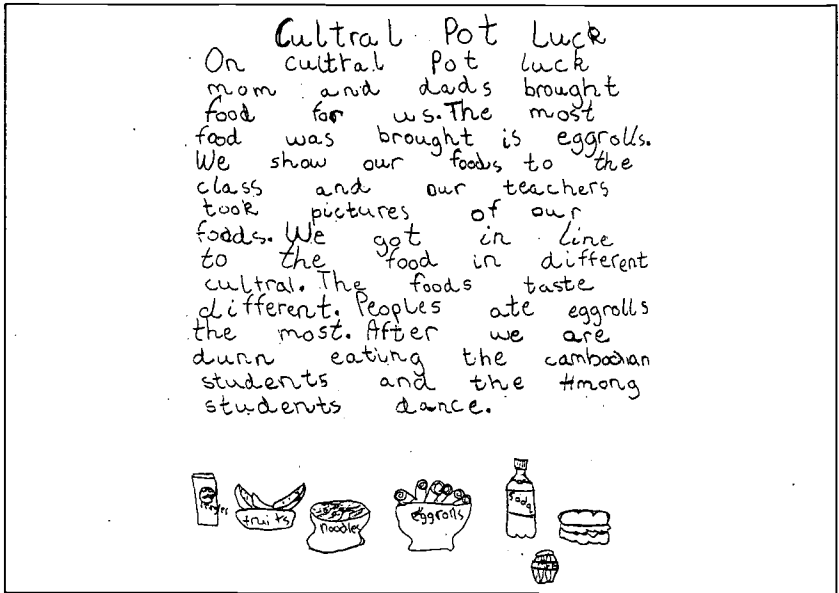 Cultral Pot Luck
On cultral Pot luck
mom and dads brought
food for us. The most
food was brought is eggrolls.
We show our foods to the
class and our teachers
took pictures of our
foods. We got in line
to the food in different
cultral. The foods taste
different. Peoples ate eggrolls
the most. After we are
dunn eating the cambodian
students and the Hmong
students dance.
fruits
noodles
eggrolls
Soda